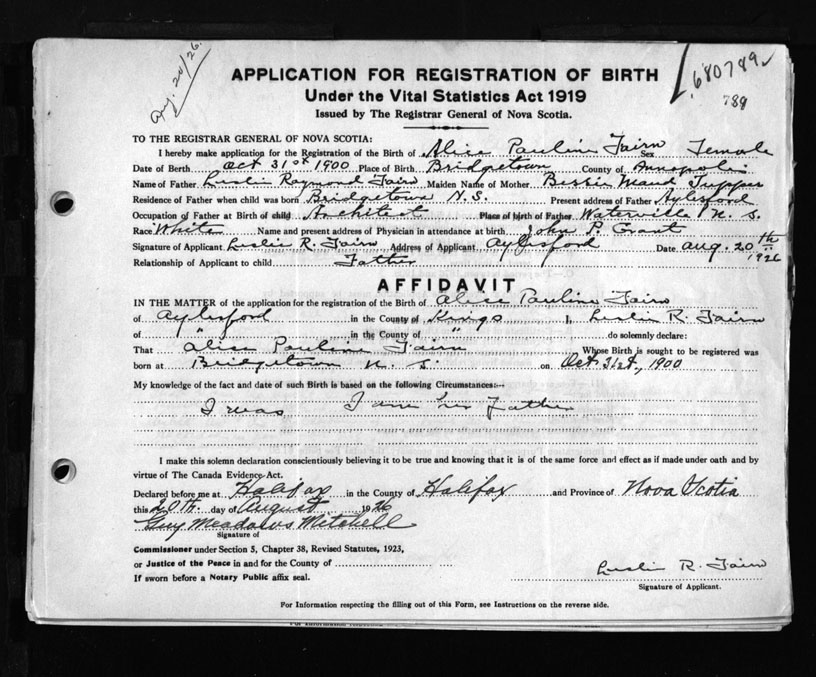 Aug. 20/26.
680789
789
APPLICATION FOR REGISTRATION OF BIRTH
Under the Vital Statistics Act 1919
Issued by The Registrar General of Nova Scotia.
TO THE REGISTRAR GENERAL OF NOVA SCOTIA:
I hereby make application for the Registration of the Birth of Alice Pauline Fairn Sex Female
Date of Birth Oct 31st 1900 Place of Birth Bridgetown County of Annapolis
Name of Father Leslie Raymond Fairn Maiden Name of Mother Bessie Maud Tupper
Residence of Father when child was born Bridgetown N.S. Present address of Father Aylesford
Occupation of Father at Birth of child Architect Place of birth of Father Waterville N. S.
Race White Name and present address of Physician in attendance at birth John P. Grant
Signature of Applicant Leslie R. Fairn Address of Applicant Aylesford Date Aug. 20th 1926
Relationship of Applicant to child Father
AFFIDAVIT
IN THE MATTER of the application for the registration of the Birth of Alice Pauline Fairn
of Aylesford in the County of Kings I, Leslie R. Fairn
of " in the County of " do solemnly declare:
That Alice Pauline Fairn Whose Birth is sought to be registered was
born at Bridgetown N. S. on Oct 31st, 1900
My knowledge of the fact and date of such Birth is based on the following Circumstances:—
I was I am her Father
I make this solemn declaration conscientiously believing it to be true and knowing that it is of the same force and effect as if made under oath and by
virtue of The Canada Evidence Act.
Declared before me at Halifax in the County of Halifax and Province of Nova Scotia
this 20th. day of August 1926
Guy Meadows Mitchell
Signature of
Commissioner under Section 3, Chapter 38, Revised Statutes, 1923,
or Justice of the Peace in and for the County of
If sworn before a Notary Public affix seal.
Leslie R. Fairn
Signature of Applicant.
For Information respecting the filling out of this Form, see Instructions on the reverse side.